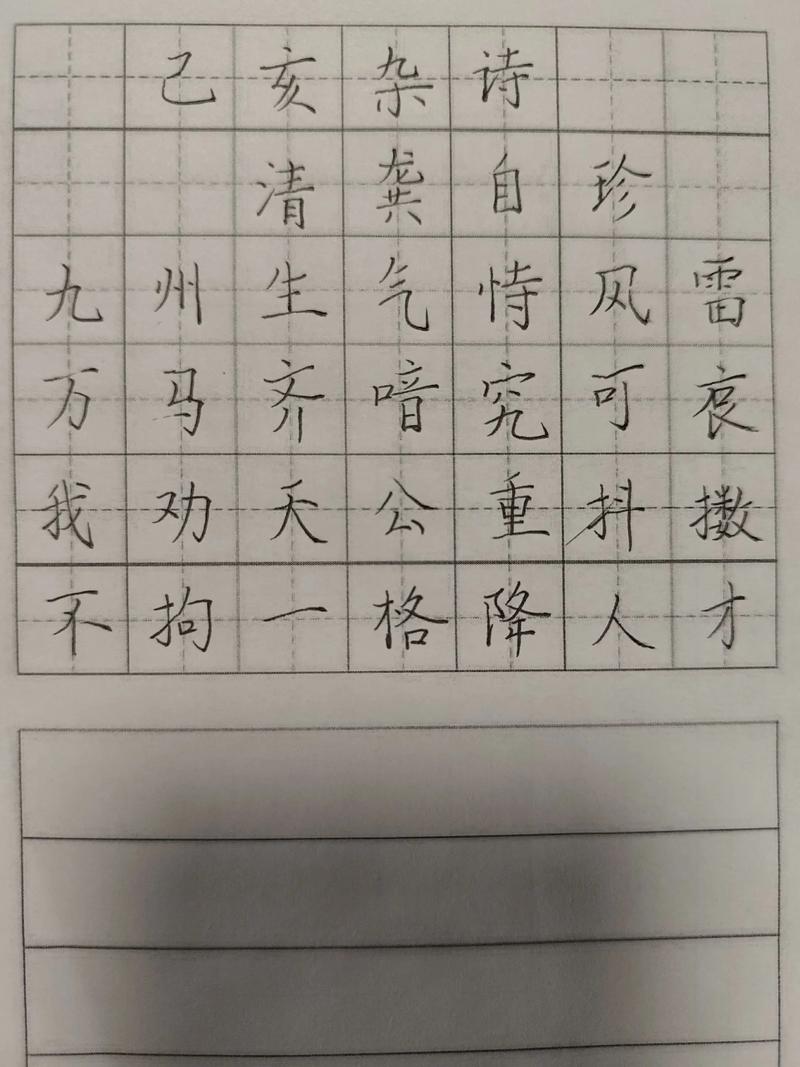 己亥杂诗
清 龚自珍
九州生气恃风雷
万马齐喑究可哀
我劝天公重抖擞
不拘一格降人才